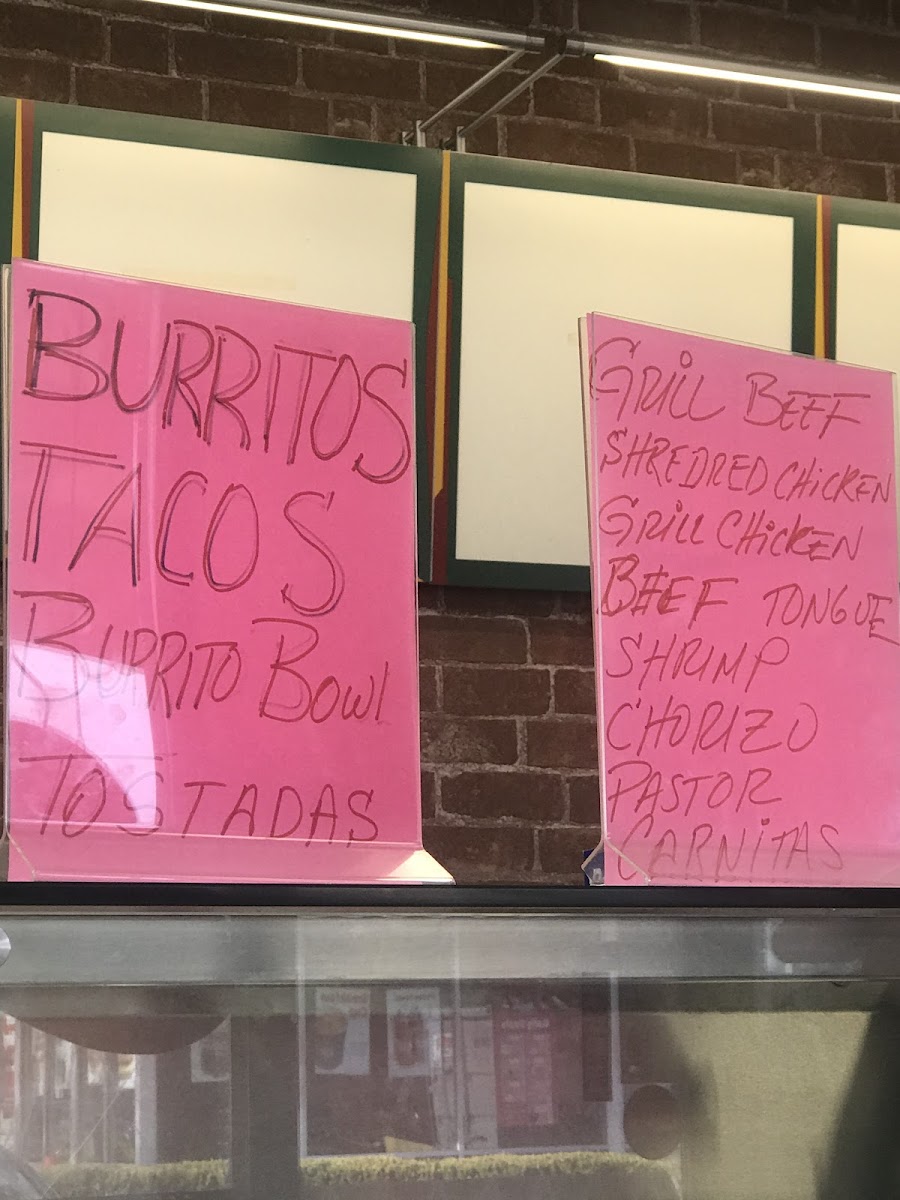 BURRITOS
TACOS
BURRITO BOWl
TOSTADAS
GRiLL BEEF
SHREDRED CHiCKEN
GRiLL CHiCKEN
BEEF TONGUE
SHRiMP
CHORIZO
PASTOR
CARNiTAS